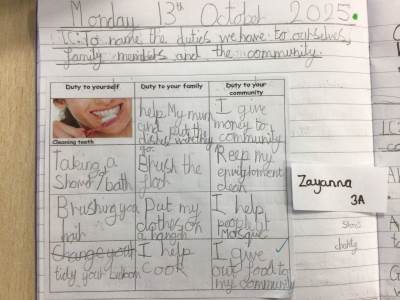 Monday 13th October 2025.
LC: To name the duties we have to ourselves,
family members and the community.
Duty to yourself
Duty to your family
Duty to your
community
Cleaning teeth
help My mum
and put the
I give
money to
community
Taking a
Shower/bath
Brush the
floor
Keep my
enviroment
clean
Brushing your
hair
Put my
clothes on
a hanger
I help
people at
Mosque
Change your
tidy your bedroom
I help
cook
I give
out food to
my community
Zayanna
3A